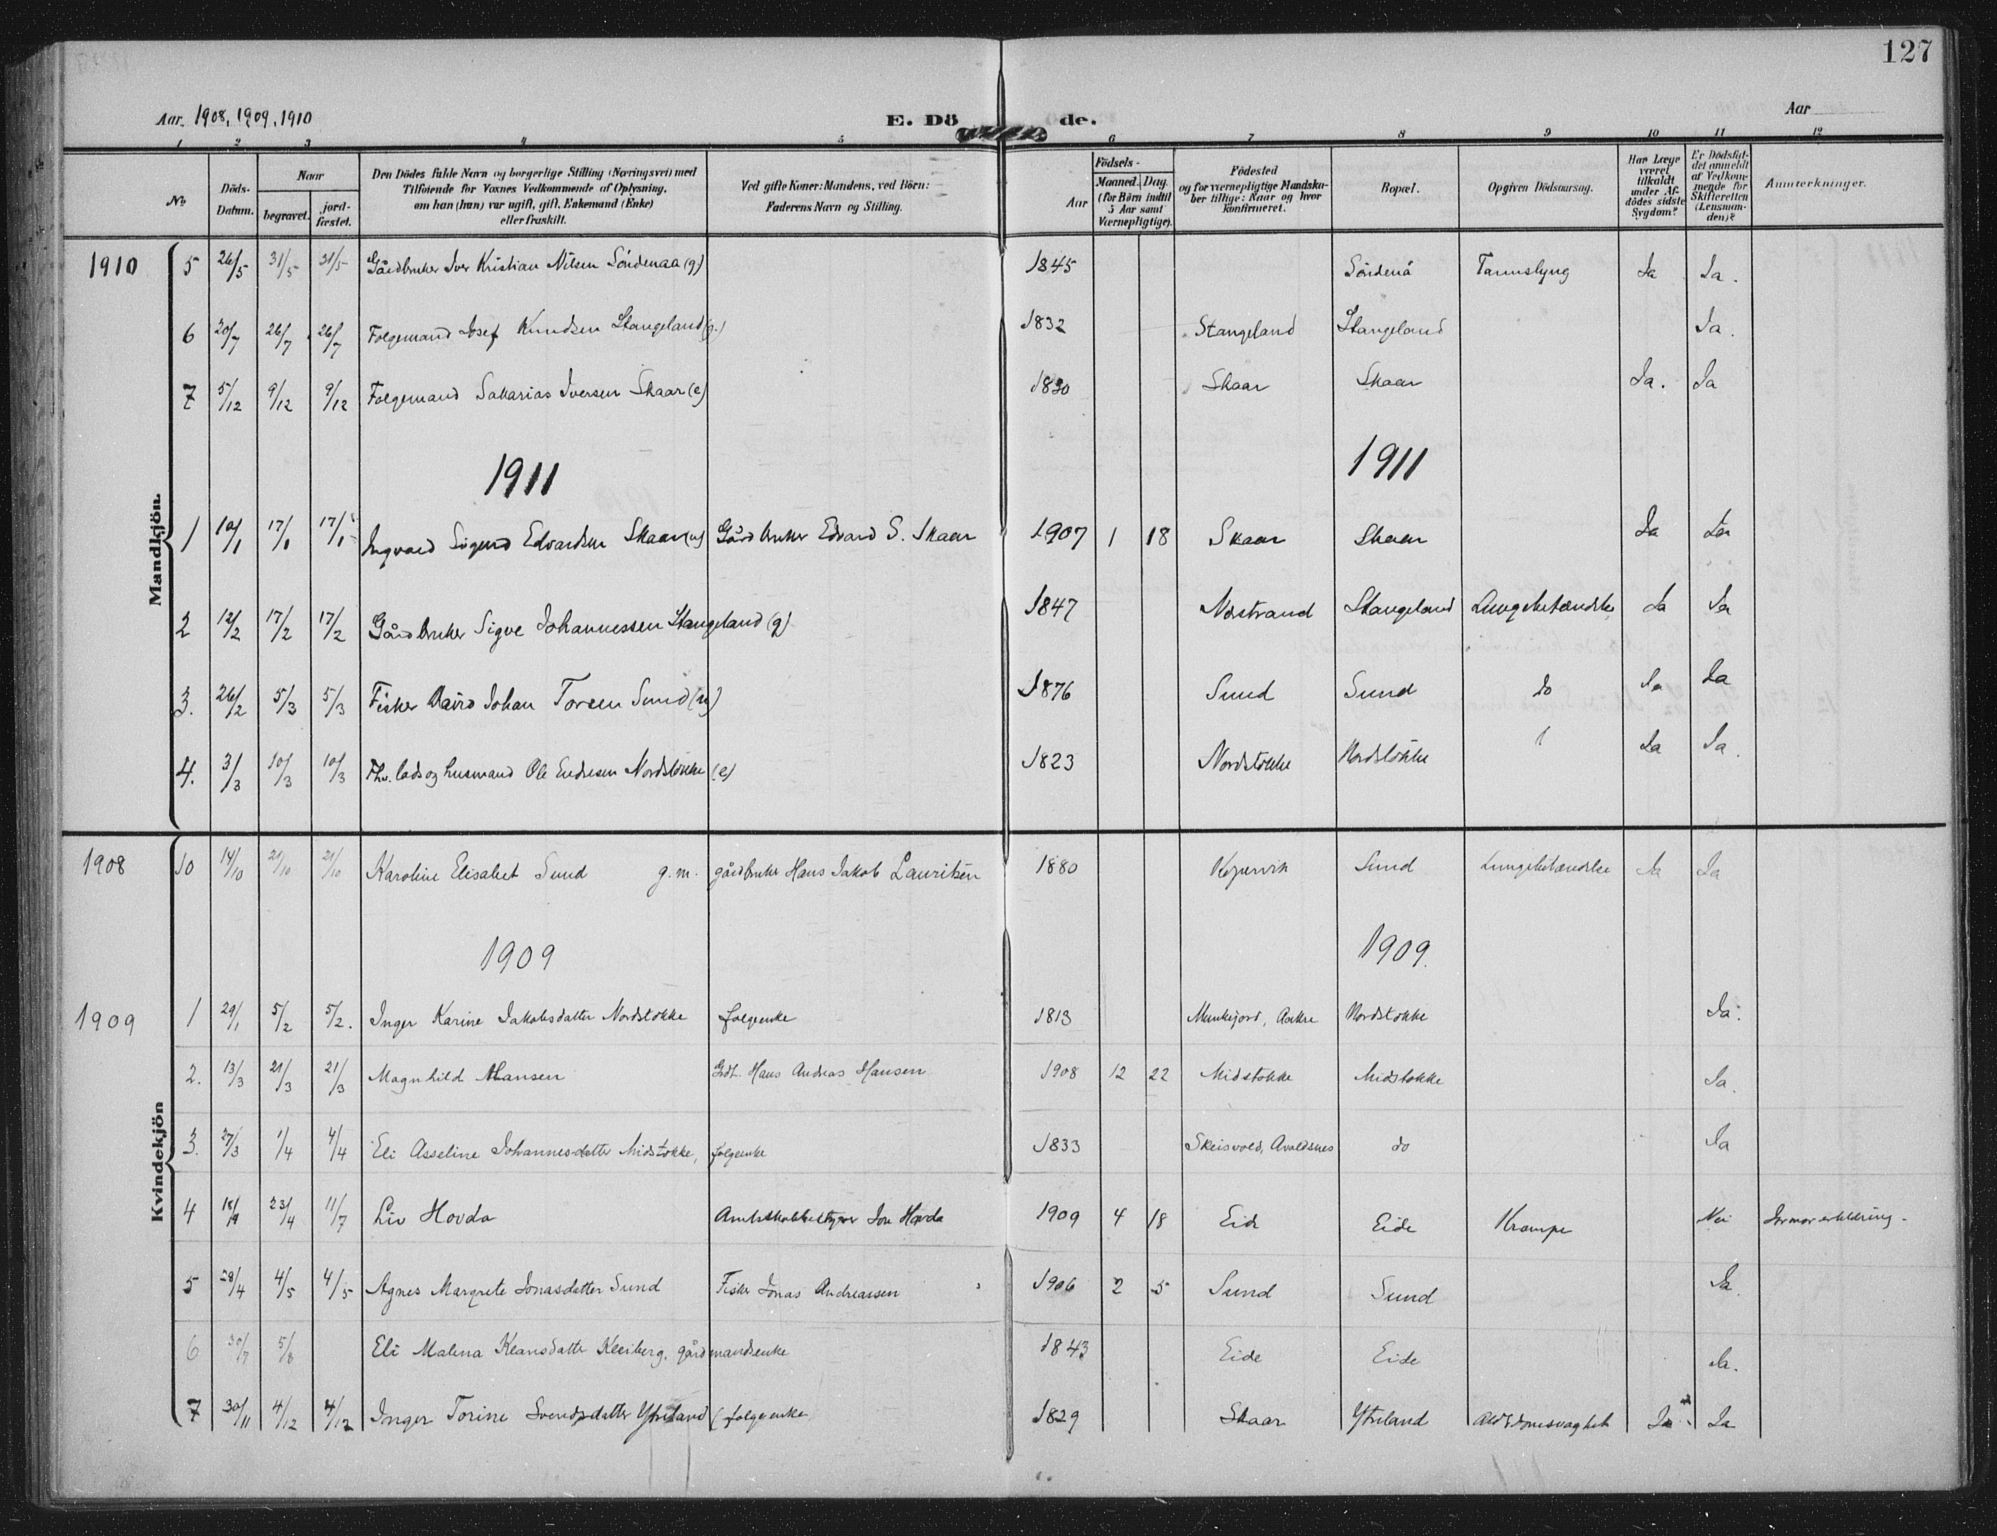 127
Aar 1908, 1909, 1910 E. Dö de. Aar
1 2 3 4 5 6 7 8 9 10 11 12
No
Döds-Datum.
Naar
begravet.
jord-fæstet.
Den Dödes fulde Navn og borgerlige Stilling (Næringsvei) med
Tilföiende for Voxnes Vedkommende af Oplysning,
om han (hun) var ugift, gift, Enkemand (Enke)
eller fraskilt.
Ved gifte Koner: Mandens, ved Börn:
Faderens Navn og Stilling.
Födsels-
Aar
Maaned. Dag
(for Börn indtil
5 Aar samt
Værnepligtige).
Födested
og for værnepligtige Mandska-
ber tillige: Naar og hvor
konfirmeret.
Bopæl.
Opgiven Dödsaarsag.
Har Læge
været
tilkaldt
under Af-
dödes sidste
Sygdom?
Er Dödsfal-
det anmeldt
af Vedkom-
mende for
Skifteretten
(Lensman-
den)?
Anmærkninger.
Mandkjön.
1910 5 26/5 31/5 31/5 Gårdbruker Iver Kristian Nilsen Sördenaa (g) 1845 Sördenå Tarmslyng Ja Ja.
6 20/7 26/7 26/7 Folgemand Josef Knudsen Stangeland (g.) 1832 Stangeland Stangeland Ja.
7 5/12 9/12 9/12 Folgemand Sakarias Iversen Skaar (e) 1830 Skaar Skaar Ja. Ja
1911 1911
1 10/1 17/1 17/1 Ingvald Sigurd Edvardsen Skaar (u) Gårdbruker Edvard S. Skaar 1907 1 18 Skaar Skaar Ja Ja
2 12/2 17/2 17/2 Gårdbruker Sigve Johannessen Stangeland (g) 1847 Nerstrand Stangeland Lungebetændelse Ja Ja
3. 26/2 5/3 5/3 Fisker David Johan Torsen Sund (u) 1876 Sund Sund do Ja Ja
4. 3/3 10/3 10/3 Fhv. lods og husmand Ole Endresen Nordstokke (e) 1823 Nordstokke Nordstokke Ja Ja.
Kvindekjön
1908 10 14/10 21/10 21/10 Karoline Elisabet Sund g.m. gårdbruker Hans Jakob Lauritsen 1880 Kopervik Sund Lungebetændelse Ja Ja
1909 1909.
1909 1 29/1 5/2 5/2. Inger Karine Jakobsdatter Nordstokke folgeenke 1813 Munkejord, Aakre Nordstokke Ja.
2. 13/3 21/3 21/3 Magnhild Hansen Gdbr. Hans Andreas Hansen 1908 12 22 Midstokke Midstokke Ja.
3. 27/3 1/4 4/4 Eli Asseline Johannesdatter Midstokke, folgeenke 1833 Skeisvold, Avaldsnes do Ja
4 18/4 23/4 11/7 Liv Hovda Amtsskolebestyrer Jon Hovda 1909 4 18 Eide Eide Krampe Nei Jormorerklæring.
5 28/4 4/5 4/5 Agnes Margrete Jonasdatter Sund Fisker Jonas Andreassen 1906 2 5 Sund Sund Ja.
6 30/7 5/8 Eli Malena Klausdatter Kleiberg. gårdmandsenke 1843 Eide Eide Ja.
7 30/11 4/12 4/12 Inger Torine Svendsdatter Ytreland (folgeenke 1829 Skaar Ytreland Alderdomssvaghet Ja Ja